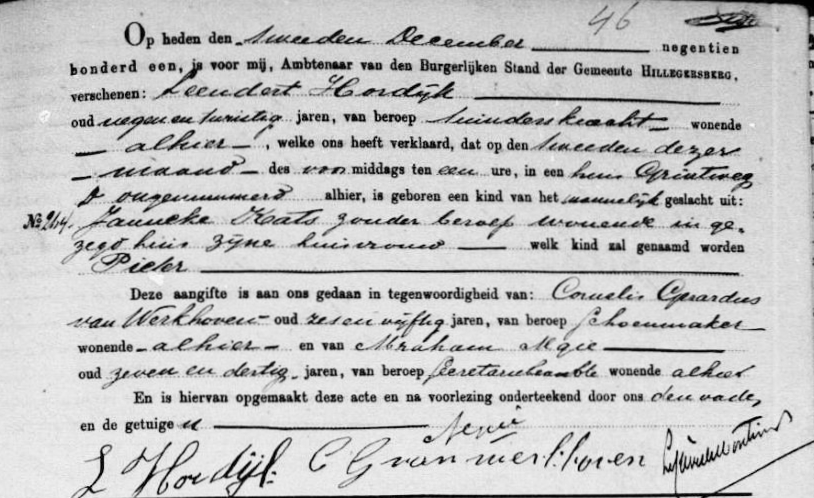 46
Op heden den tweeden December negentien
honderd een, is voor mij, Ambtenaar van den Burgerlijken Stand der Gemeente HILLEGERSBERG,
verschenen: Leendert Hordijk
oud negen en twintig jaren, van beroep tuindersknecht wonende
alhier, welke ons heeft verklaard, dat op den tweeden dezer
maand des voormiddags ten een ure, in een huis Grintweg
ongenummerd alhier, is geboren een kind van het mannelijk geslacht uit:
No. 264. Janneke Kats zonder beroep wonende in ge-
zegd huis zijne huisvrouw welk kind zal genaamd worden
Pieter
Deze aangifte is aan ons gedaan in tegenwoordigheid van: Cornelis Gerardus
van Werkhoven oud zes en vijftig jaren, van beroep schoenmaker
wonende alhier en van Abraham
oud zeven en dertig jaren, van beroep secretariebeambte wonende alhier
En is hiervan opgemaakt deze acte en na voorlezing onderteekend door ons den vader
en de getuigen
L Hordijk C G van Werkhoven